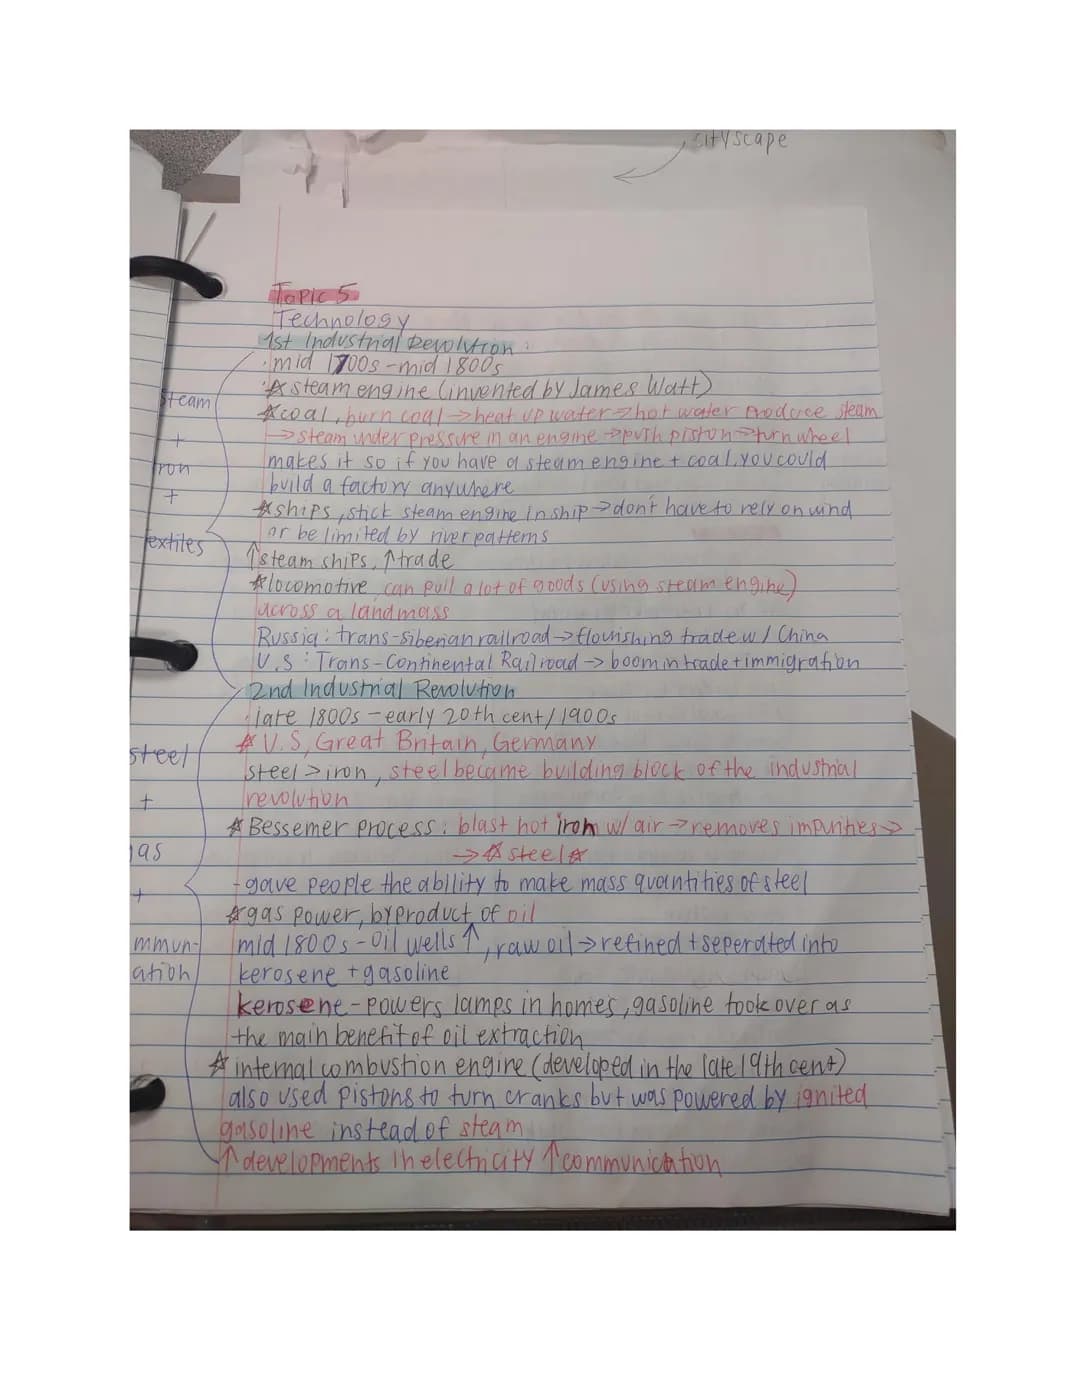 cityscape
Topic 5
Technology
1st Industrial Revolution:
· mid 1700s - mid 1800s
·☆ steam engine (invented by James Watt)
steam
☆coal, burn coal → heat up water → hot water produce steam
→ steam under pressure in an engine → push piston → turn wheel
+
iron
makes it so if you have a steam engine + coal, you could
build a factory anywhere
+
☆ships, stick steam engine in ship → don't have to rely on wind
or be limited by river patterns
extiles
↑steam ships, ↑trade
☆locomotive can pull a lot of goods (using steam engine)
across a landmass
Russia: trans-siberian railroad → flourishing trade w/ China
U.S: Trans-Continental Railroad → boom in trade + immigration
2nd Industrial Revolution
· late 1800s - early 20th cent/1900s
☆ U.S, Great Britain, Germany
steel
steel > iron, steel became building block of the industrial
revolution
+
☆ Bessemer process: blast hot iron w/ air → removes impurities →
→ ☆ steel☆
gas
- gave people the ability to make mass quantities of steel
+
☆gas power, byproduct of oil
mmun-
mid 1800s - Oil wells ↑, raw oil → refined + seperated into
ation
kerosene + gasoline
kerosene - powers lamps in homes, gasoline took over as
the main benefit of oil extraction
☆ internal combustion engine (developed in the late 19th cent)
also used pistons to turn cranks but was powered by ignited
gasoline instead of steam
↑ developments in electricity ↑communication